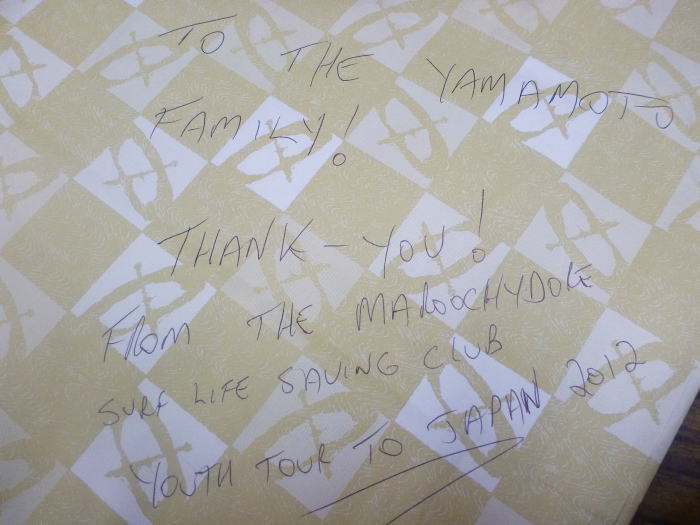 TO THE YAMAMOTO
FAMILY!
THANK-YOU!
FROM THE MAROOCHYDORE
SURF LIFE SAVING CLUB
YOUTH TOUR TO JAPAN 2012